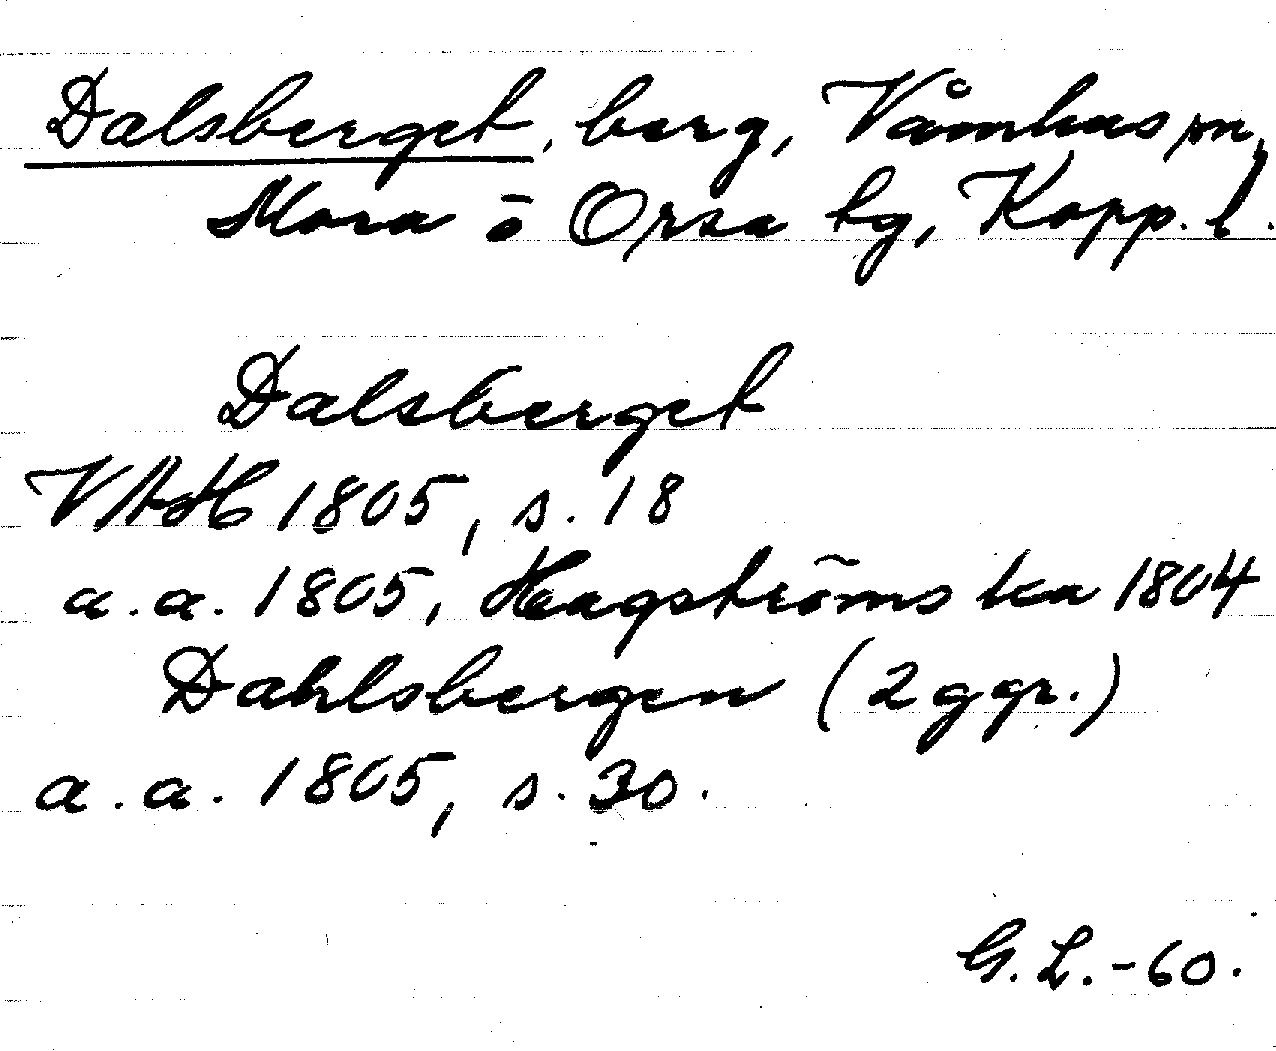 Dalsberget, berg, Våmhus sn,
Mora o Orsa tg, Kopp. l.
Dalsberget
VAH 1805, s. 18
a.a. 1805, Hagströms ka 1804
Dahlsbergen (2 ggr.)
a.a. 1805, s. 30.
G. L. -60.